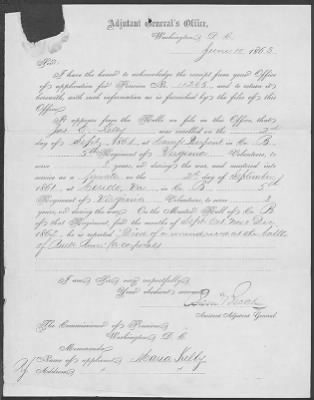 Adjutant General's Office,
Washington, D. C.
June 12, 1863.
Sir:
I have the honor to acknowledge the receipt from your Office
of application for Pension No. and to return it
herewith, with such information as is furnished by the files of this
Office.
It appears from the Rolls on file in this Office, that
Jas. E. Kelly was enrolled on the 2nd
day of Sept, 1861, at Camp in Co. B
5th Regiment of Virginia Volunteers, to
serve 3 years, or during the war, and mustered into
service as a Private on the 2d day of September,
1861, at Ceredo, Va in Co. B. 5th
Regiment of Virginia Volunteers, to serve 3
years, or during the war. On the Muster Roll of Co. B
of that Regiment, for the months of Sept. Oct. Nov & Dec,
1862, he is reported "Died of wounds at the battle
of Bull Run
I am, Sir, very respectfully,
Your obedient servant,
Assistant Adjutant General.
The Commissioner of Pensions,
Washington, D. C.
Memoranda:
Name of applicant, Maria Kelly
Address,